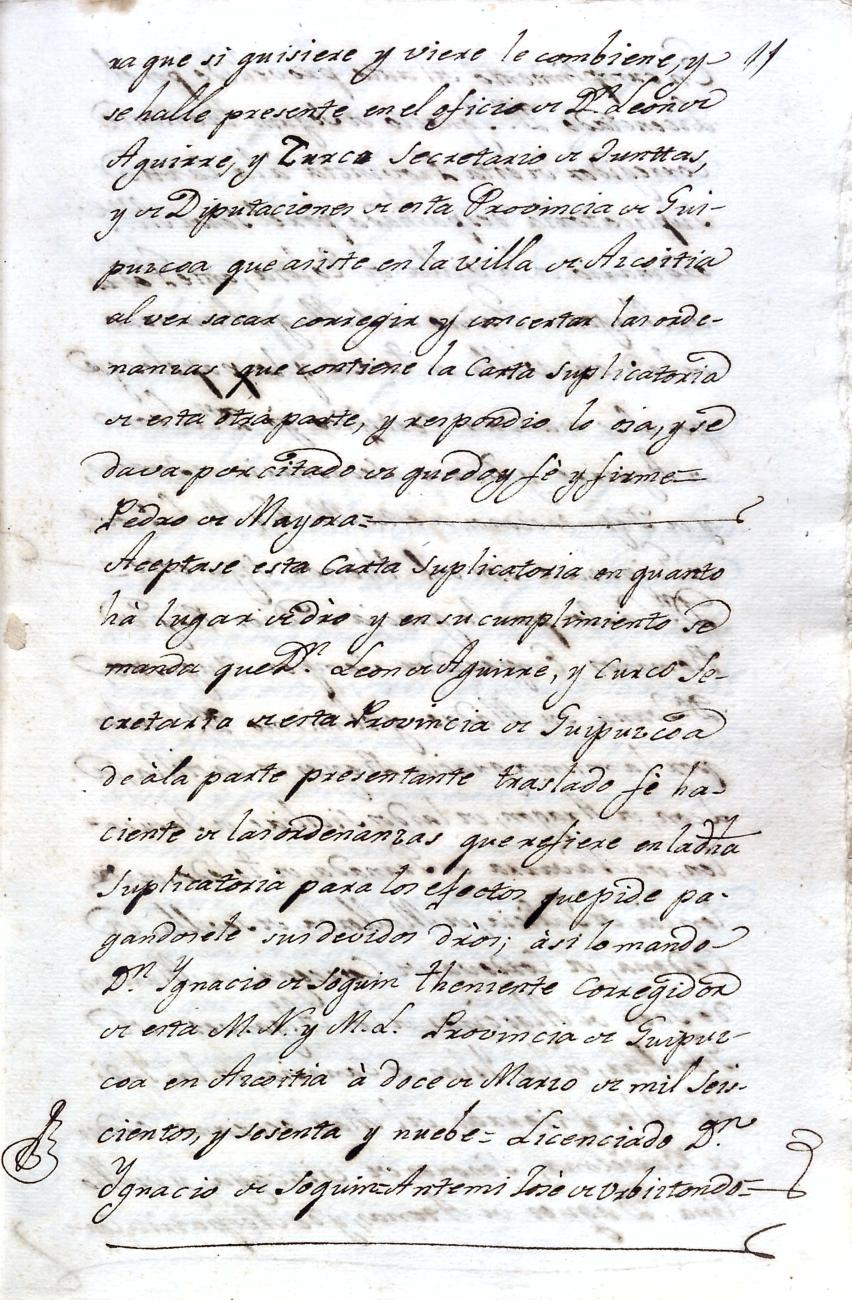 ra que si quisiere y viere le combiene, y 11
se halle presente en el oficio de Dn. Leon de
Aguirre, y Zurco Secretario de Junttas,
y de Diputaciones de esta Provincia de Gui-
puzcoa que asiste en la villa de Azcoitia
al ver sacar corregir y concertar las orde-
nanzas que contiene la Carta Suplicatoria
de esta otra parte, y respondio lo oia, y se
dava por citado de que doy fè y firme=
Pedro de Mayora=
Aceptase esta Carta Suplicatoria en quanto
hà lugar de dro y en su cumplimiento se
manda que Dn. Leon de Aguirre, y Curco Se-
cretario de esta Provincia de Guipuzcoa
de à la parte presentante traslado fè ha-
ciente de las ordenanzas que refiere en la dha
Suplicatoria para los efectos que pide pa-
gandosele sus devidos dros; àsi lo mando
Dn. Ygnacio de Soguin theniente Corregidor
de esta M. N. y M. L. Provincia de Guipuz-
coa en Azcoitia à doce de Marzo de mil Seis-
cientos, y sesenta y nuebe= Licenciado Dn.
Ygnacio de Soguin= Antemi Josè de Urbiztondo=